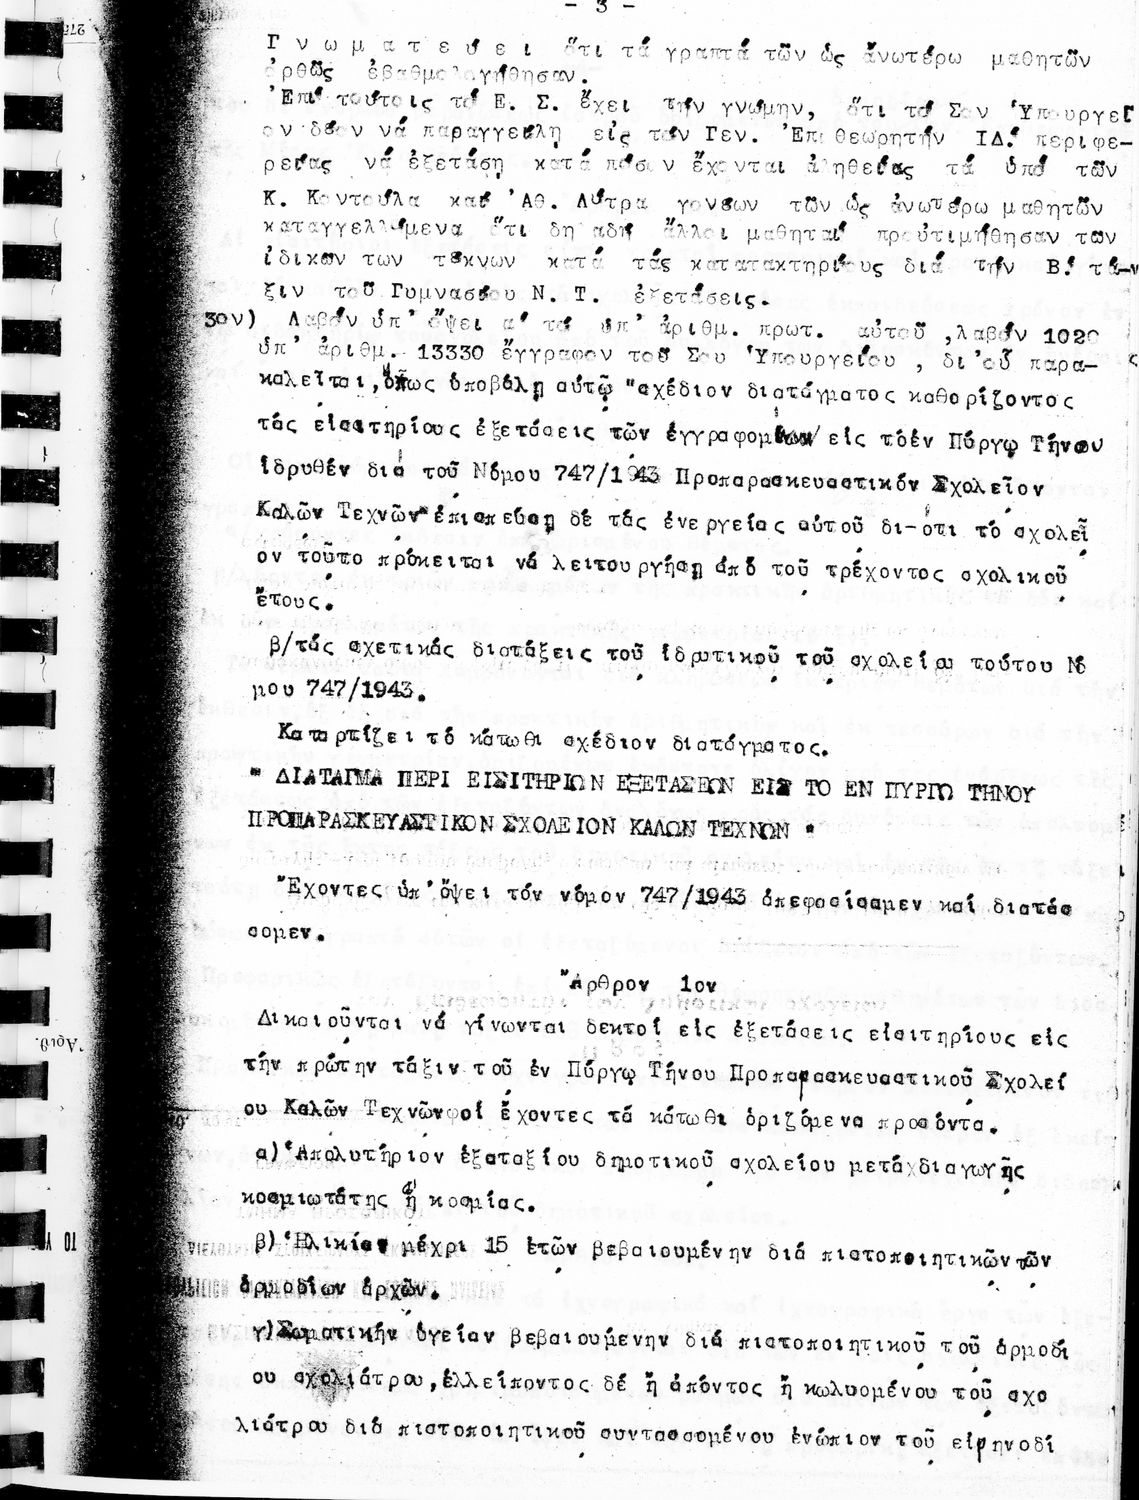 - 3 -
Γ ν ω μ α τ ε ύ ε ι ὅτι τά γραπτά τῶν ὡς ἄνωτέρω μαθητῶν
ὀρθῶς ἐβαθμολογήθησαν.
Ἐπί τούτοις τό Ε. Σ. ἔχει τήν γνώμην, ὅτι τό Σον Ὑπουργεῖ
ον δέον νά παραγγείλη εἰς τόν Γεν. Ἐπιθεωρητήν ΙΔ! περιφε-
ρείας νά ἐξετάση κατά πόσον ἔχονται ἀληθείας τά ὑπό τῶν
Κ. Κοντούλα καί Ἀθ. Λύτρα γονέων τῶν ὡς ἀνωτέρω μαθητῶν
καταγγελλόμενα ὅτι δηλαδή ἄλλοι μαθηταί προὐτιμήθησαν των
ἰδικων των τέκνων κατά τάς κατατακτηρίους διά τήν Β! τά-
ξιν τοῦ Γυμνασίου Ν. Τ. ἐξετάσεις.
3ον) Λαβόν ὑπ' ὄψει α' τό ὑπ' ἀριθμ. πρωτ. αὐτοῦ ,λαβόν 1020
ὑπ' ἀριθμ. 13330 ἔγγραφον τοῦ Σου Ὑπουργείου , δι'οὗ παρα-
καλεῖται,ὅπως ὑποβάλη αὐτῷ "σχέδιον διατάγματος καθορίζοντος
τάς εἰσιτηρίους ἐξετάσεις τῶν ἐγγραφομένων εἰς τόέν Πύργῳ Τήνου
ἱδρυθέν διά τοῦ Νόμου 747/1943 Προπαρασκευαστικόν Σχολεῖον
Καλῶν Τεχνῶν"ἐπισπεύση δέ τάς ἐνεργείας αὐτοῦ δι-ότι τό σχολεῖ
ον τοῦτο πρόκειται νά λειτουργήση ἀπό τοῦ τρέχοντος σχολικοῦ
ἔτους.
β/τάς σχετικάς διατάξεις τοῦ ἱδρυτικοῦ τοῦ σχολείου τούτου Νό
μου 747/1943.
Καταρτίζει τό κάτωθι σχέδιον διατάγματος.
" ΔΙΑΤΑΓΜΑ ΠΕΡΙ ΕΙΣΙΤΗΡΙΩΝ ΕΞΕΤΑΣΕΩΝ ΕΙΣ ΤΟ ΕΝ ΠΥΡΓΩ ΤΗΝΟΥ
ΠΡΟΠΑΡΑΣΚΕΥΑΣΤΙΚΟΝ ΣΧΟΛΕΙΟΝ ΚΑΛΩΝ ΤΕΧΝΩΝ "
Ἔχοντες ὑπ'ὄψει τόν νόμον 747/1943 ἀπεφασίσαμεν καί διατάσ
σομεν.
Ἄρθρον 1ον
Δικαιοῦνται νά γίνωνται δεκτοί εἰς ἐξετάσεις εἰσιτηρίους εἰς
τήν πρώτην τάξιν τοῦ ἐν Πύργῳ Τήνου Προπαρασκευαστικοῦ Σχολεί
ου Καλῶν Τεχνῶν,οἱ ἔχοντες τά κάτωθι ὁριζόμενα προσόντα.
α)Ἀπολυτήριον ἑξαταξίου δημοτικοῦ σχολείου μετά διαγωγῆς
κοσμιωτάτης ἤ κοσμίας.
β)Ἡλικίαν μέχρι 15 ἐτῶν βεβαιουμένην διά πιστοποιητικῶν τῶν
ἁρμοδίων ἀρχῶν.
γ)Σωματικήν ὑγείαν βεβαιουμένην διά πιστοποιητικοῦ τοῦ ἁρμοδί
ου σχολιάτρου,ἐλλείποντος δέ ἤ ἀπόντος ἤ κωλυομένου τοῦ σχο
λιάτρου διά πιστοποιητικοῦ συντασσομένου ἐνώπιον τοῦ εἰρηνοδί